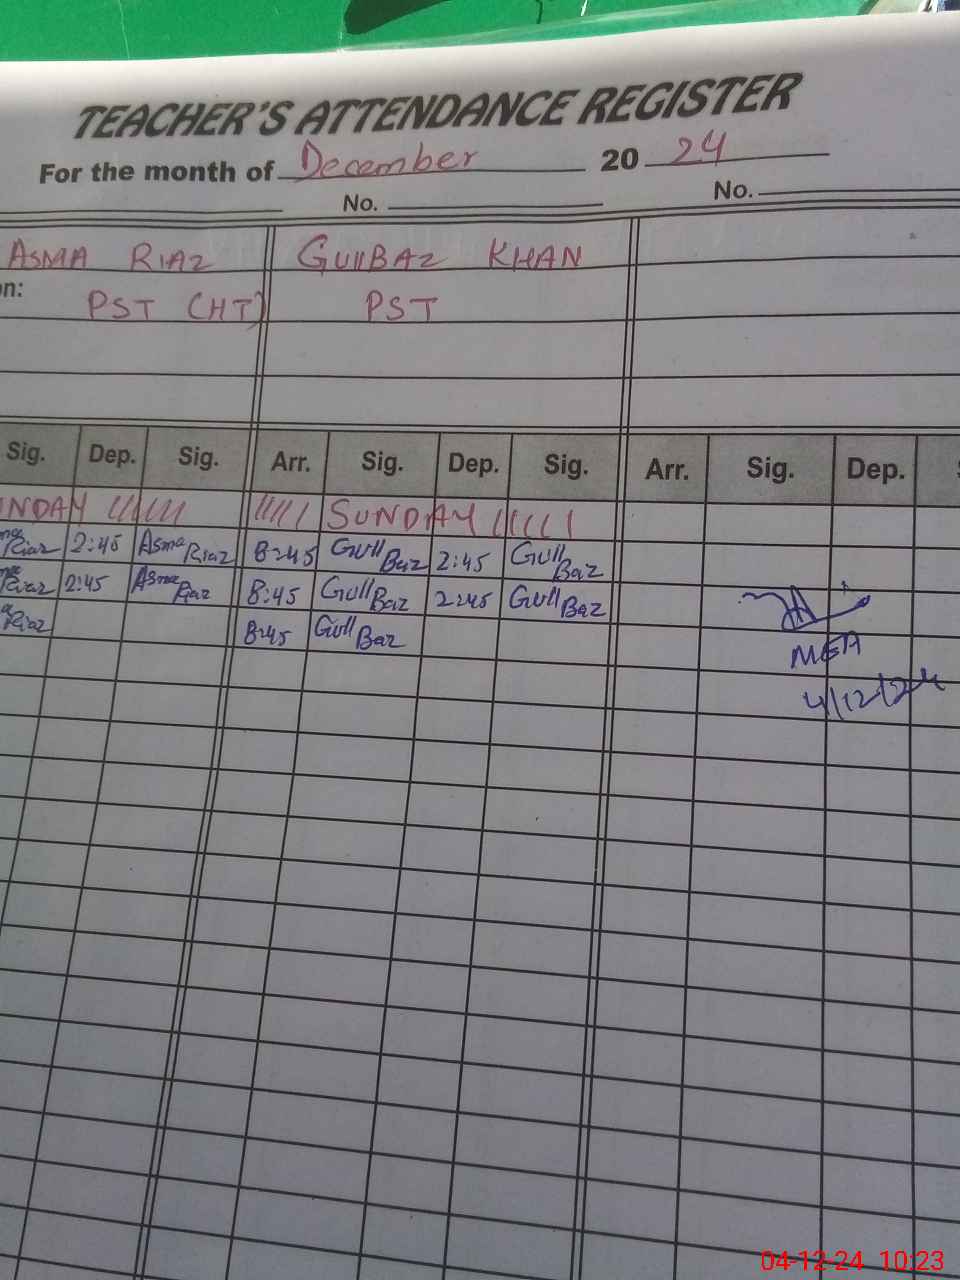 TEACHER'S ATTENDANCE REGISTER
For the month of December 2024
No. No.
ASMA RIAZ GULLBAZ KHAN
on: PST (HT) PST
Sig. Dep. Sig. Arr. Sig. Dep. Sig. Arr. Sig. Dep.
UNDAY ////// ///// SUNDAY /////
Riaz 2:45 Asma Riaz 8:45 Gull Baz 2:45 Gull Baz
Riaz 2:45 Asma Riaz 8:45 Gull Baz 2:45 Gull Baz
Riaz 8:45 Gull Baz
MEA
4/12/24
04-12-24 10:23